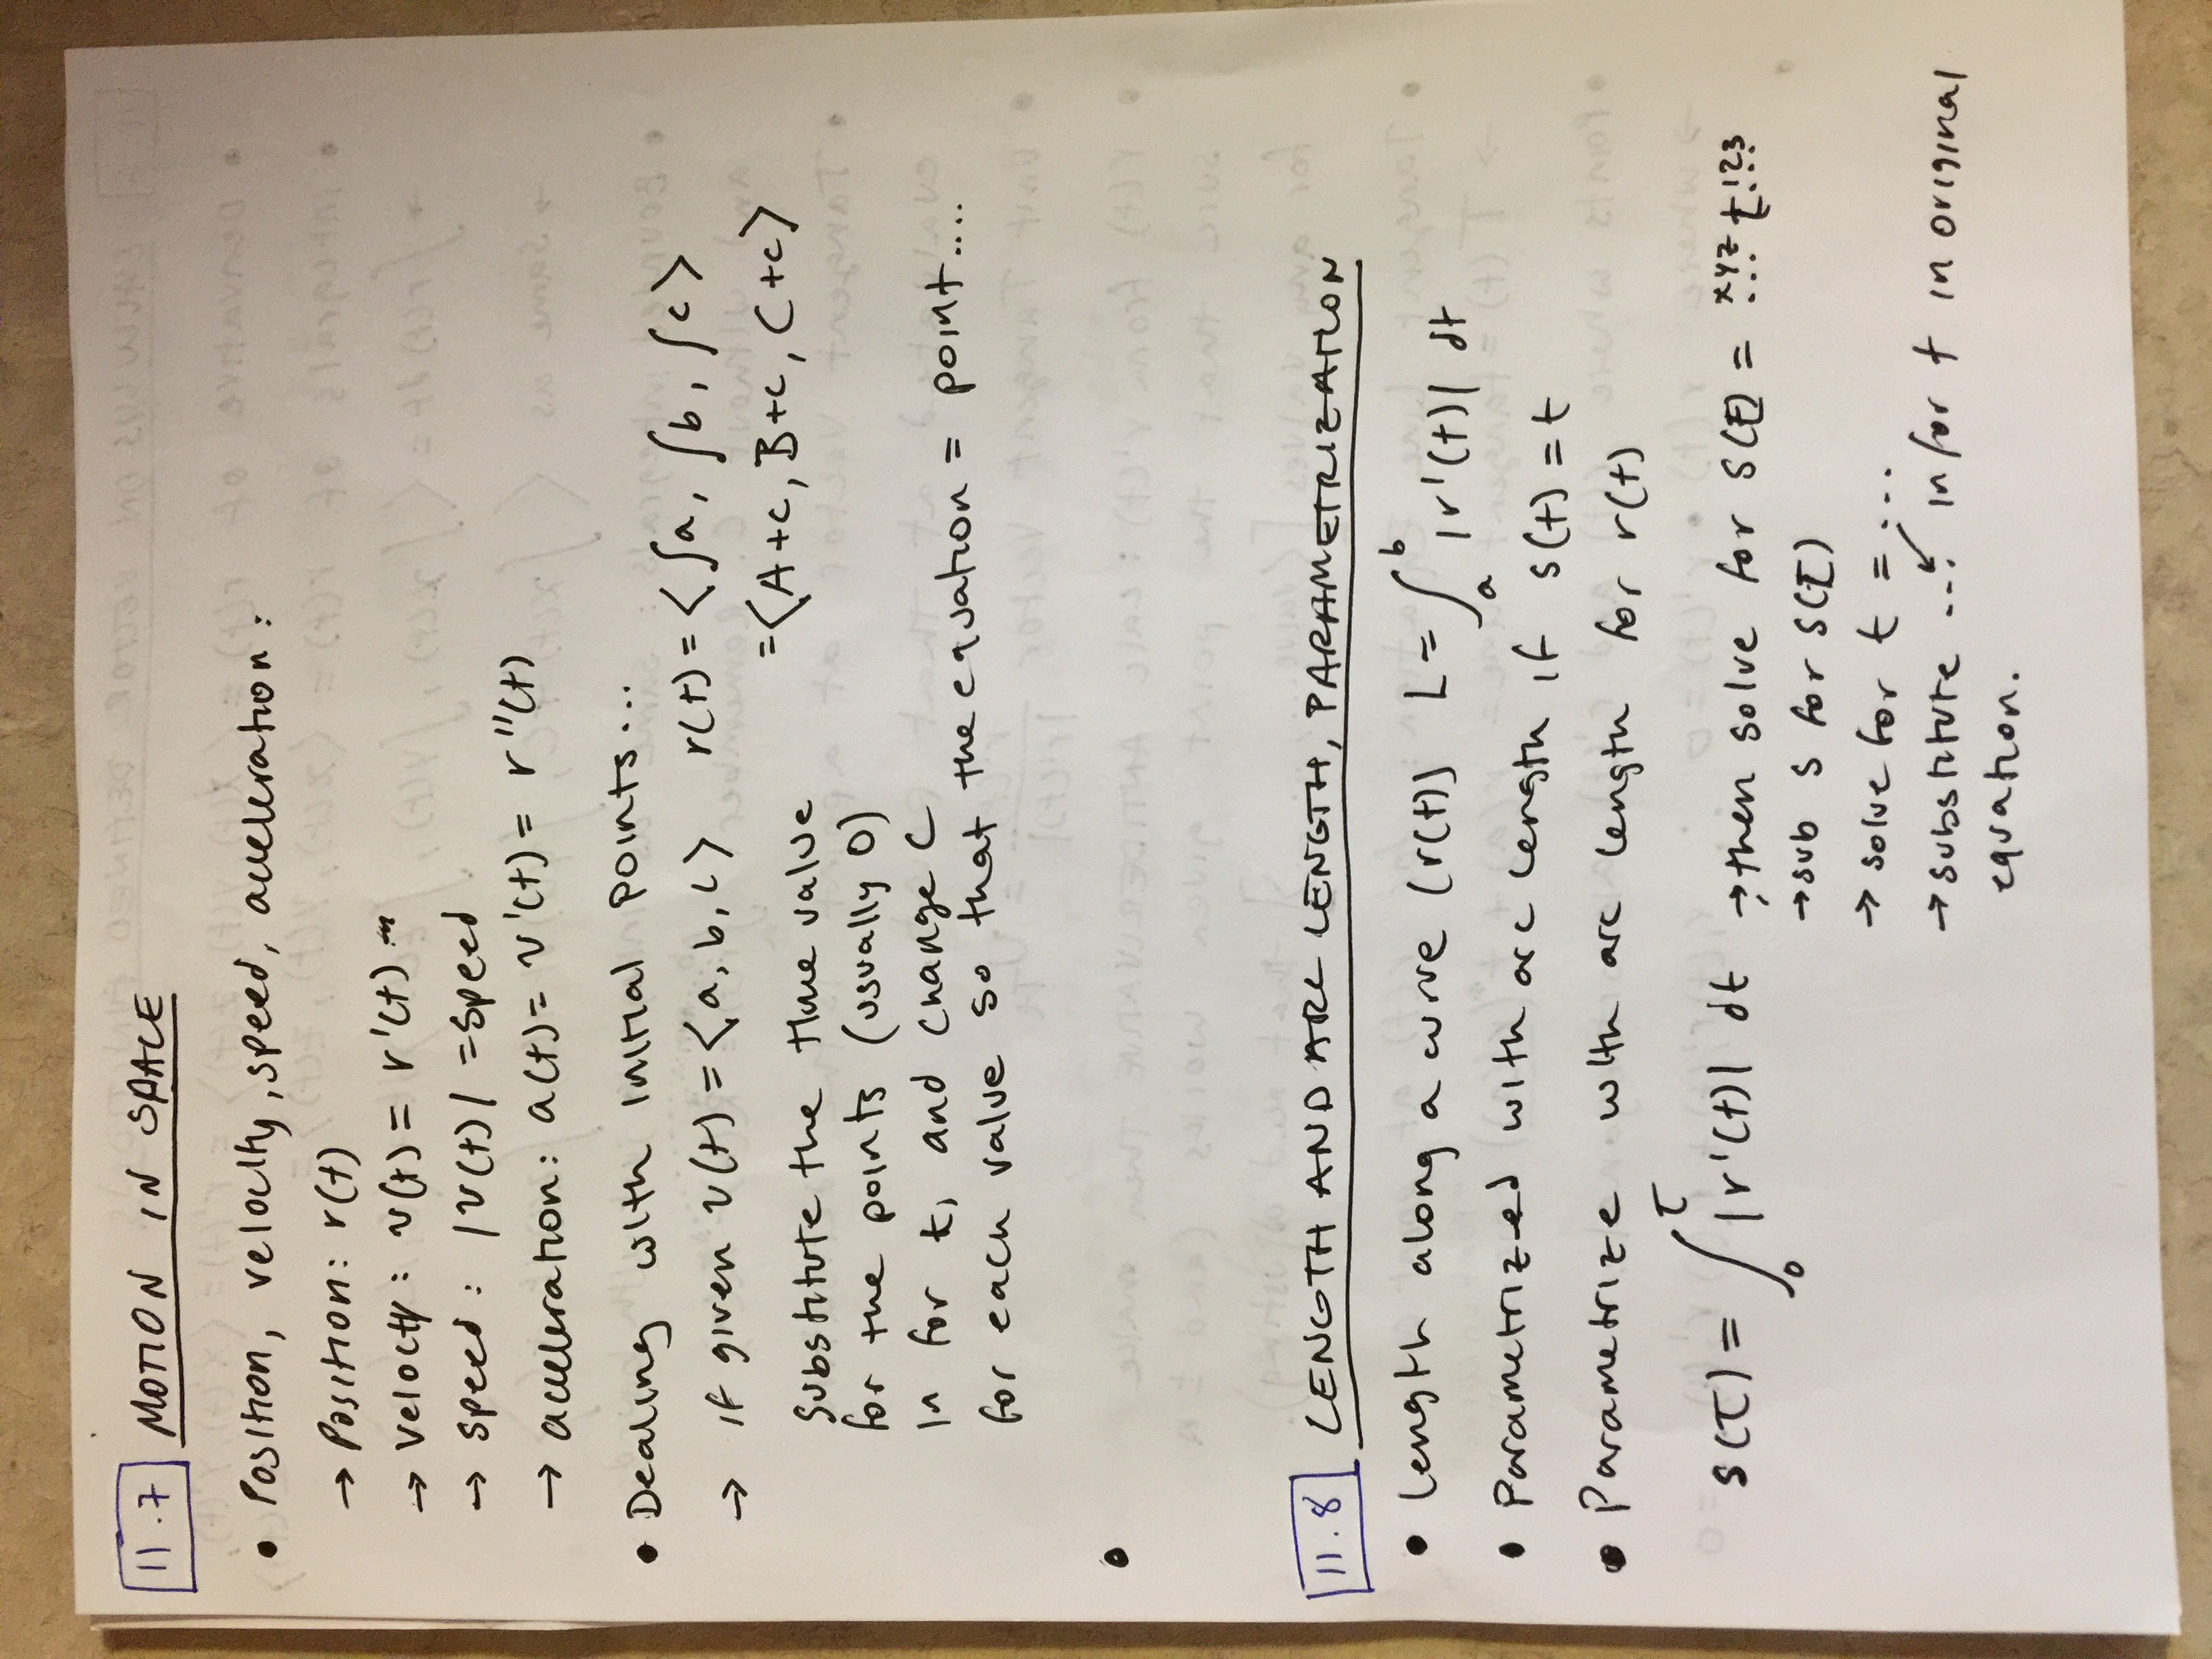 11.7 MOTION IN SPACE
• Position, velocity, speed, acceleration:
→ Position: r(t)
→ Velocity: v(t) = r'(t)
→ speed: |v(t)| = Speed
→ acceleration: a(t) = v'(t) = r''(t)
• Dealing with initial points...
→ if given v(t) = <a, b, c> r(t) = <∫a, ∫b, ∫c>
= <A+c, B+c, C+c>
Substitute the time value
for the points (usually 0)
in for t, and change C
for each value so that the equation = point....
•
11.8 LENGTH AND ARC LENGTH, PARAMETRIZATION
• Length along a curve (r(t)) L = ∫_a^b |r'(t)| dt
• Parametrized with arc length if s(t) = t
• Parametrize with arc length for r(t)
s(τ) = ∫_0^τ |r'(t)| dt → then solve for s(t) = xyz... t 123...
→ sub s for s(τ)
→ solve for t = ...
→ substitute ... in for t in original
equation.